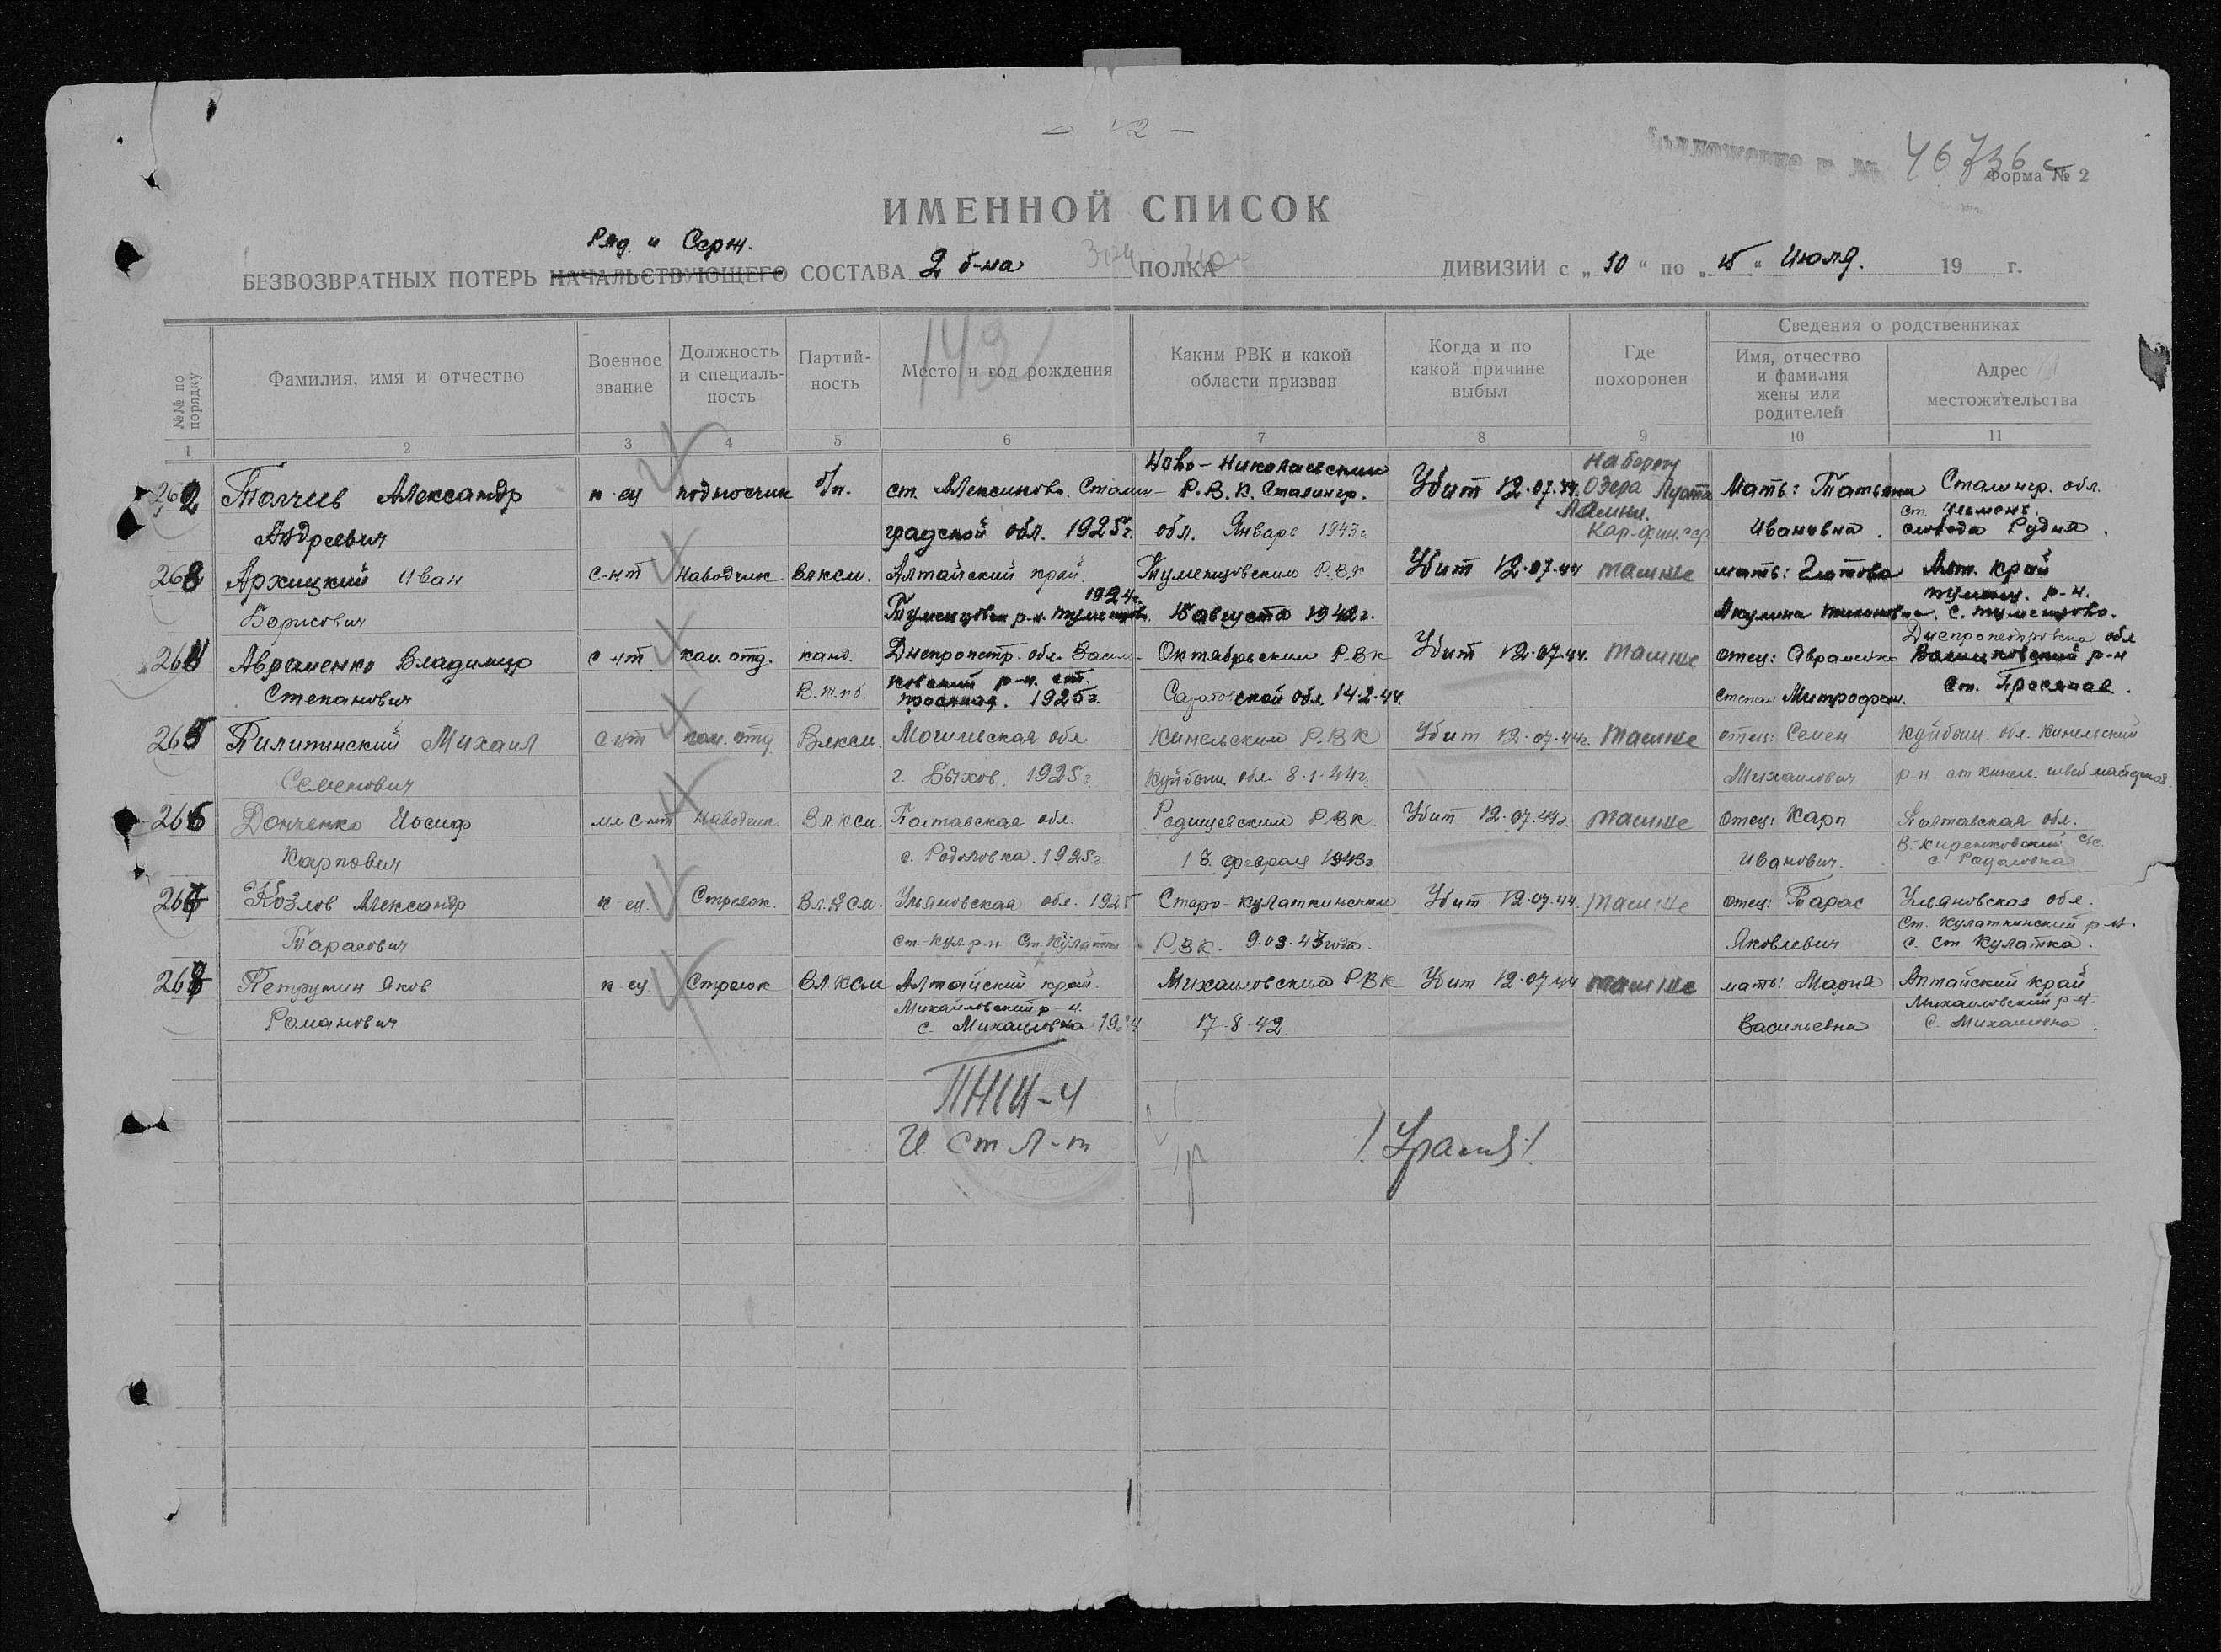 - 12 -
46736 с
Форма № 2
ИМЕННОЙ СПИСОК
Ряд и Серж.
БЕЗВОЗВРАТНЫХ ПОТЕРЬ НАЧАЛЬСТВУЮЩЕГО СОСТАВА 2 б-на ПОЛКА ДИВИЗИИ с „10“ по „15“ Июля. 19 г.
№№ по порядку
Фамилия, имя и отчество
Военное звание
Должность и специальность
Партий-ность
Место и год рождения
Каким РВК и какой области призван
Когда и по какой причине выбыл
Где похоронен
Сведения о родственниках
Имя, отчество и фамилия жены или родителей
Адрес местожительства
1 2 3 4 5 6 7 8 9 10 11
Ново-Николаевским на берегу
262 Толчиев Александр к-ец подносчик б/п. ст. Алексиково. Сталин- Р.В.К. Сталингр. Убит 12.07.44. Озера Мать: Татьяна Сталингр. обл.
Андреевич градской обл. 1925г. обл. Январе 1943г. Кар-фин. Ивановна. слобода Рудня.
263 Архицкий Иван с-нт Наводчик Влксм. Алтайский край Тюменцовским Р.В.К Убит 12.07.44 там же мать: Алт. край
1924г. р-н.
Борисович 15 августа 1942г. Акулина с. Тюменцово.
Днепропетровска обл
264 Авраменко Владимир с-нт ком. отд. канд. Днепропетр. обл. Васил- Октябрьским Р.В.К Убит 12.07.44. там же отец: Авраменко Васильковский р-н
Степанович В.К.П.б. ковский р-н. ст. Просяная. 1925г. Саратовской обл. 14.2.44. степан Митрофан. ст. Просяная.
265 Пилипинский Михаил с-нт ком. отд Влксм. Могилевская обл Кинельским Р.В.К Убит 12.07.44г. там же отец: Семен Куйбыш. обл. Кинельский
Семенович г. Быхов. 1925г Куйбыш. обл. 8.1.44г. Михаилович р-н. ст кинел.
266 Донченко Иосиф мл с-нт Наводчик. Влксм. Полтавская обл. Родищевским Р.В.К. Убит 12.07.44г. там же отец: Карп Полтавская обл.
Карпович с. Родоловка. 1925г. февраля 1943г Иванович. с. Родаловка
267 Козлов Александр к-ец. Стрелок. Влксм. Ульяновская обл. 1925 Старо-кулаткинским Убит 12.07.44. там же отец: Тарас Ульяновская обл.
Ст. Кулаткинский р-н.
Тарасович ст-кул р-н. Ст. Кулатка РВК. 9.03.43 года. Яковлевич с. Ст Кулатка.
268 Петрунин Яков к-ец Стрелок Влксм Алтайский край. Михаиловским РВК Убит 12.07.44 там же мать: Мария Алтайский край
Михайловский р-н. Михаиловский р-н.
Романович с. Михаиловка 1924 17-8-42. Васильевна с. Михаиловка.
ПНШ-4